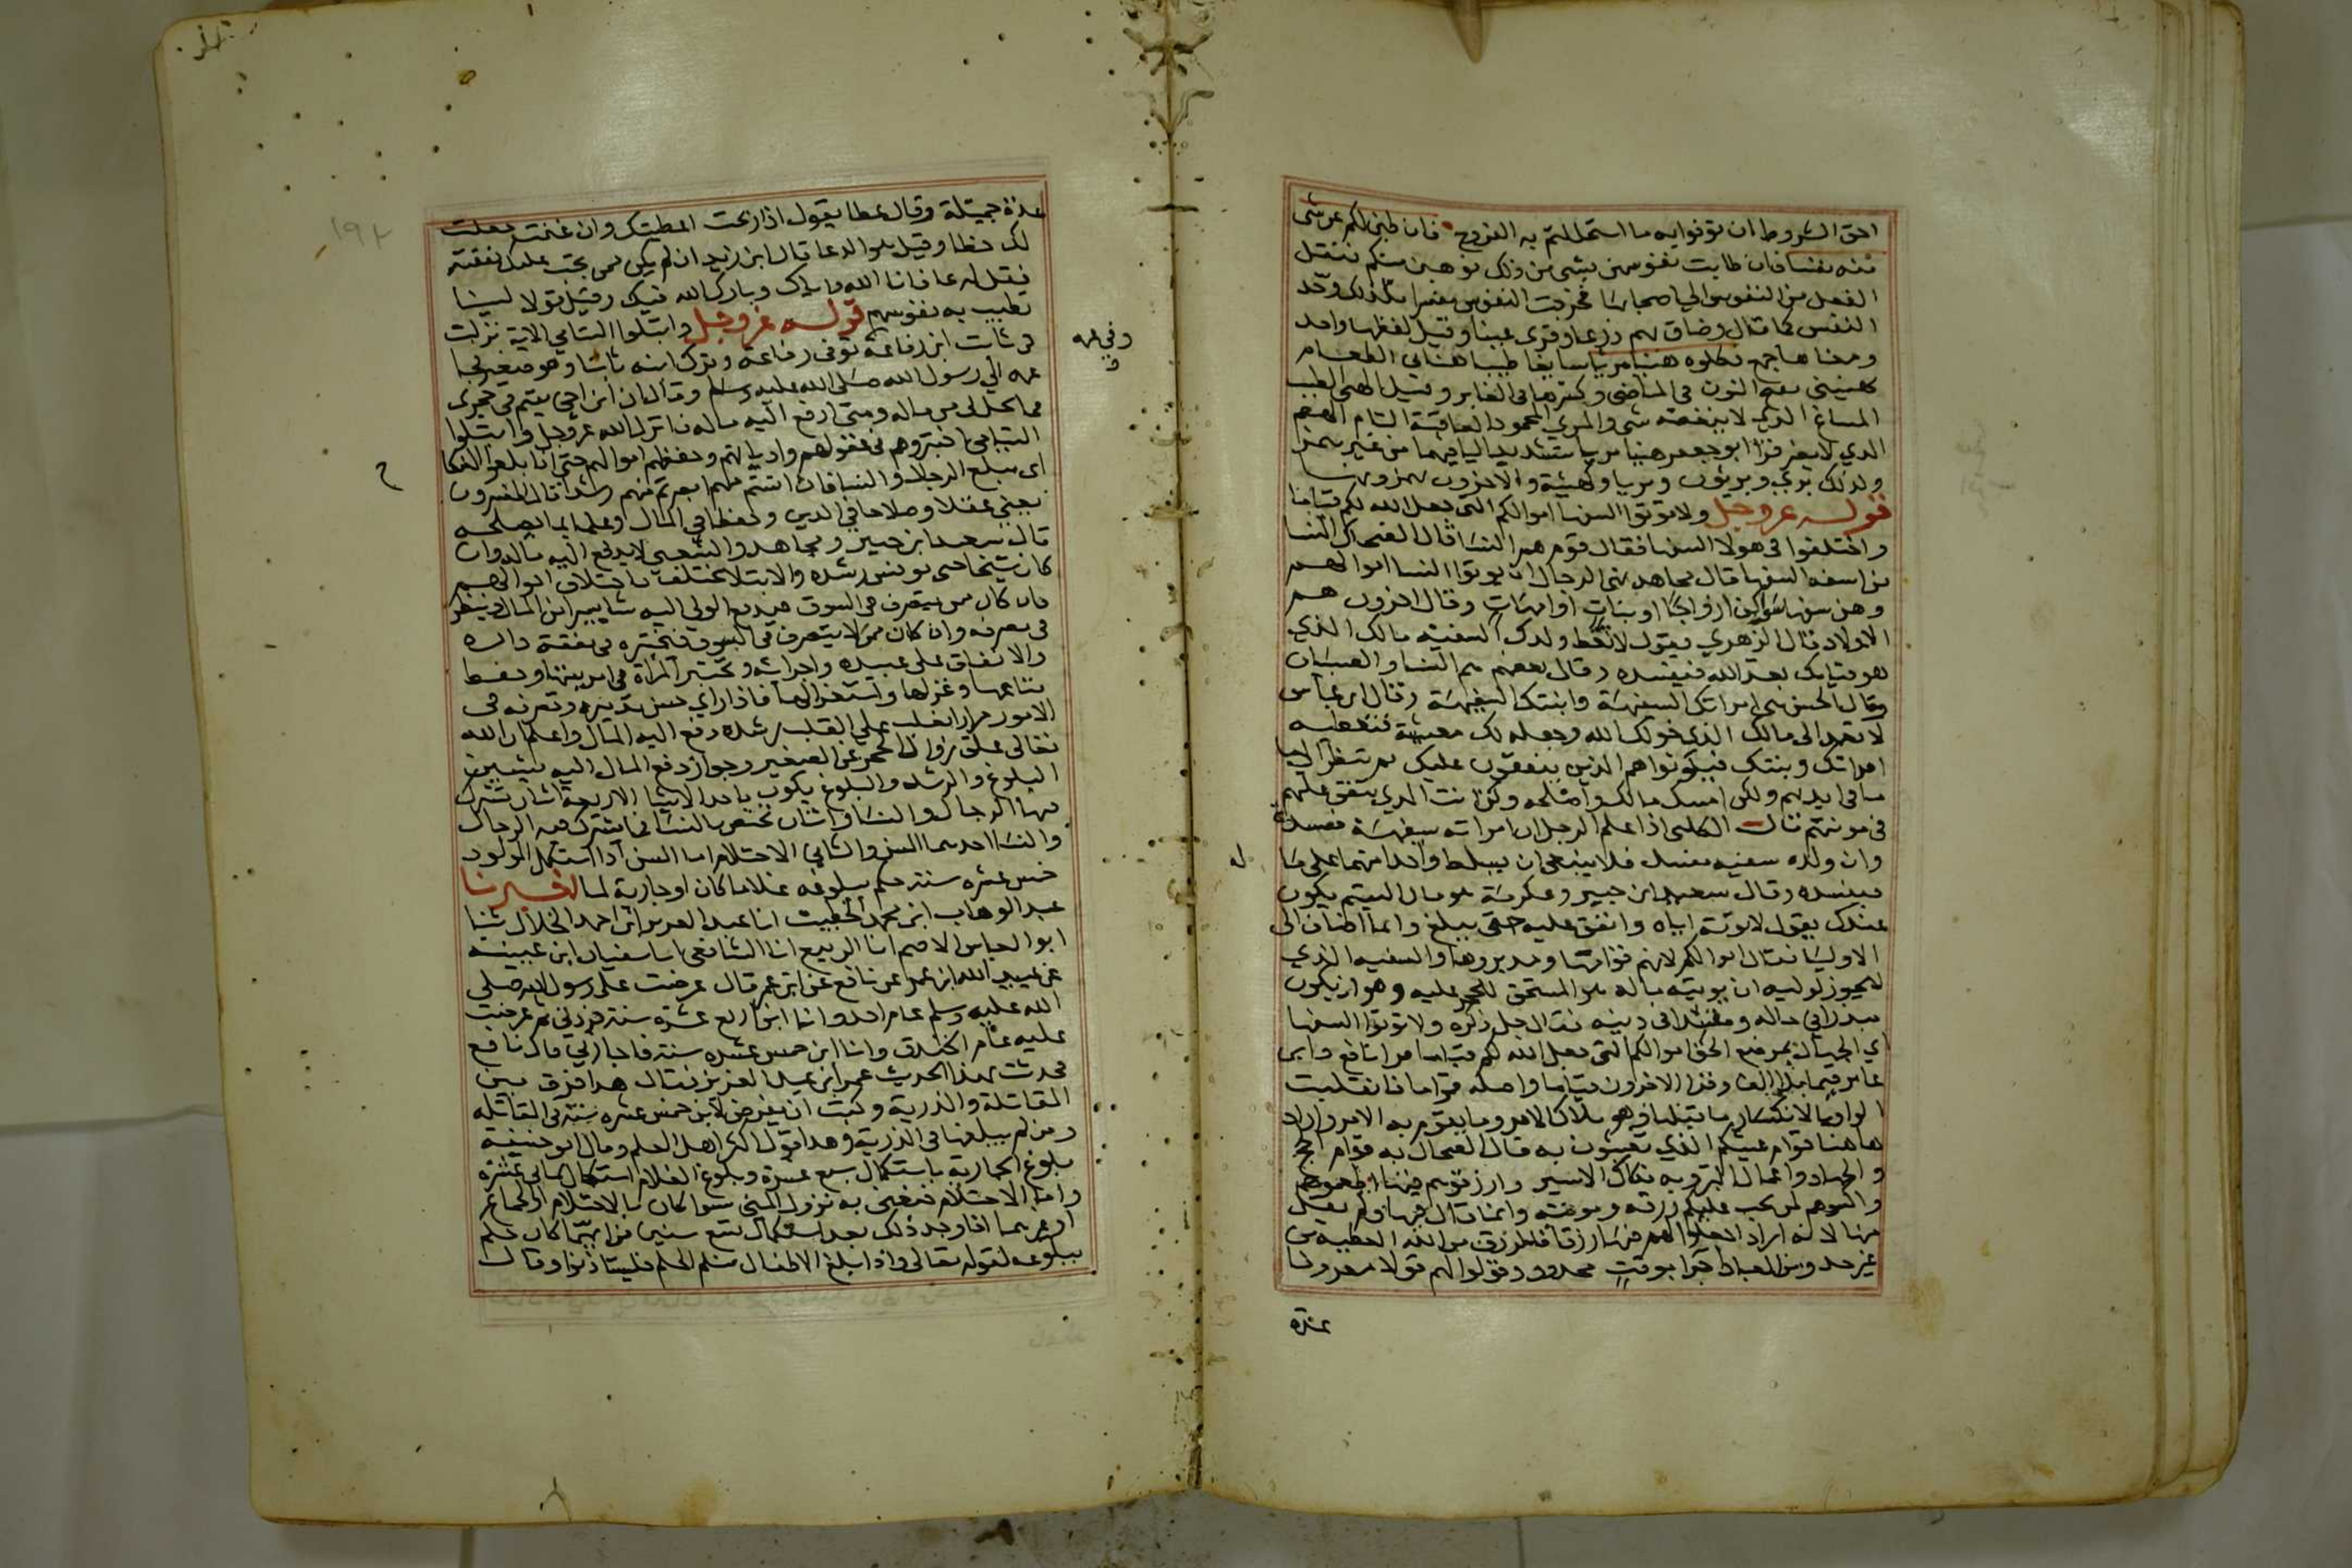 احق الشروط ان توفوا به ما استحللتم به الفروج فان طبن لكم عن شى
منه نفسا فان طابت نفوسهن بشى من ذلك فوهبن منكم فنقل
الفعل من النفوس الى اصحابها فخرجت النفوس مفسرا فلذلك وحد
النفس كما قال وضاق بهم ذرعا وقرى عينا وقيل لفظها واحد
ومعناها جمع فكلوه هنيا مريا سايغا طيبا هناني الطعام
يهنيني بفتح النون في الماضي وكسرها في الغابر وقيل الهني الطيب
المساغ الذي لا ينغصه شى والمري المحمود العاقبة التام الهضم
الذي لا يضر قرا ابو جعفر هنيا مريا بتشديد اليا فيهما من غير همز
وكذلك بري وبريون وبريا وكهيئة والاخرون يهمزونها
قوله عز وجل ولا توتوا السفها اموالكم التي جعل الله لكم قياما
واختلفوا في هولا السفها فقال قوم هم النسا قال الضحاك النسا
من اسفه السفها قال مجاهد نهى الرجال ان يوتوا النسا اموالهم
وهن سفها سواكن ازواجا او بنات او امهات وقال اخرون هم
الاولاد قال الزهري يقول لا تعط ولدك السفيه مالك الذي
هو قيامك بعد الله فيفسده وقال بعضهم هم النسا والصبيان
وقال الحسن هي امراتك السفيهة وابنك السفيه وقال ابن عباس
لا تعمد الى مالك الذي خولك الله وجعله لك معيشة فتعطيه
امراتك وبنتك فيكونوا هم الذين ينفقون عليك ثم تنظر الى
ما في ايديهم ولكن امسك مالك واصلحه وكن انت الذي ينفق عليهم
في مونتهم قال الكلبي اذا علم الرجل ان امراته سفيهة مفسدة
وان ولده سفيه مفسد فلا ينبغي ان يسلط واحدا منهما على ما
له
فيفسده وقال سعيد ابن جبير وعكرمة هو مال اليتيم يكون
عندك يقول لا توته اياه وانفق عليه حتى يبلغ وانما اضاف الى
الاوليا فقال اموالكم لانهم قوامها ومدبروها والسفيه الذي
لا يجوز لوليه ان يوتيه ماله هو المستحق للحجر عليه وهو ان يكون
مبذرا في ماله ومفسدا في دينه فقال جل ذكره ولا توتوا السفها
اي الجهال بموضع الحق اموالكم التي جعل الله لكم قياما قرا نافع وابن
عامر قيما بلا الف وقرا الاخرون قياما واصله قواما فانقلبت
الواو يا لانكسار ما قبلها وهو ملاك الامر وما يقوم به الامر واراد
هاهنا قوام عيشكم الذي تعيشون به قال الضحاك به قوام الحج
والجهاد واعمال البر وبه فكاك الاسير وارزقوهم فيها اطعموهم
واكسوهم لمن يجب عليكم رزقه ومونته وانما قال فيها ولم يقل
منها لانه اراد اجعلوا لهم فيها رزقا فالرزق من الله العطية من
غير حد ومن العباد اجرا بوقت محدود وقولوا لهم قولا معروفا
عدة
عدة جميلة وقال عطا يقول اذا ربحت اعطيتك وان غنمت جعلت
لك حظا وقيل هو الدعا قال ابن زيد ان لم يكن ممن يجب عليك نفقته
فقل له عافانا الله واياك وبارك الله فيك وقيل قولا لينا
تطيب به نفوسهم قوله عز وجل وابتلوا اليتامي الاية نزلت
في ثابت ابن رفاعة توفى رفاعة وترك ابنه ثابتا وهو صغير فجا
عمه الى رسول الله صلى الله عليه وسلم وقال ان ابن اخي يتيم في حجري
وفي عمه
فما يحل لي من ماله ومتى ادفع اليه ماله فانزل الله عز وجل وابتلوا
اليتامى اختبروهم في عقولهم واديانهم وحفظهم اموالهم حتى اذا بلغوا النكا
ح
اي مبلغ الرجال والنسا فان انستم منهم ابصرتم منهم رشدا قال المفسرون
يعني عقلا وصلاحا في الدين وحفظا في المال وعلما بما يصلحه
قال سعيد ابن جبير ومجاهد والشعبي لا يدفع اليه ماله وان
كان شيخا حتى يونس رشده والابتلا يختلف باختلاف احوالهم
فان كان ممن يتصرف في السوق فيدفع الولي اليه شيا يسيرا من المال وينظر
في تصرفه وان كان ممن لا يتصرف في السوق فيختبره في نفقة داره
والانفاق على عبيده واجرائه وتختبر المراة في امر بيتها وحفظ
متاعها وغزلها واستغزالها فاذا راى حسن تدبيره وتصرفه في
الامور مرارا يغلب على القلب رشده دفع اليه المال واعلم ان الله
تعالى علق زوال الحجر عن الصغير وجواز دفع المال اليه بشيين
البلوغ والرشد والبلوغ يكون باحد الاشيا الاربعة اثنان تشترك
فيها الرجال والنسا واثنان تختص بالنسا فما يشترك فيه الرجال
والنسا احدهما السن والثاني الاحتلام اما السن اذا استكمل المولود
خمس عشره سنة حكم ببلوغه غلاما كان او جارية لما اخبرنا
عبد الوهاب ابن محمد الخطيب انا عبد العزيز ابن احمد الخلال ثنا
ابو العباس الاصم انا الربيع انا الشافعي انا سفيان ابن عيينة
عن عبيد الله ابن عمر عن نافع عن ابن عمر قال عرضت على رسول الله صلى
الله عليه وسلم عام احد وانا ابن اربع عشرة سنة فردني ثم عرضت
عليه عام الخندق وانا ابن خمس عشره سنة فاجازني قال نافع
فحدثت بهذا الحديث عمر ابن عبد العزيز فقال هذا فرق بين
المقاتلة والذرية وكتب ان يفرض لابن خمس عشره سنة في المقاتله
ومن لم يبلغها في الذرية وهذا قول اكثر اهل العلم وقال ابو حنيفة
بلوغ الجارية باستكمال سبع عشرة وبلوغ الغلام استكمال ثماني عشرة
واما الاحتلام فنعني به نزول المني سوا كان بالاحتلام او بالجماع
او غيرهما اذا وجد ذلك بعد استكمال تسع سنين من ايهما كان حكم
ببلوغه لقوله تعالى واذا بلغ الاطفال منكم الحلم فليستاذنوا وقال
١٩٢